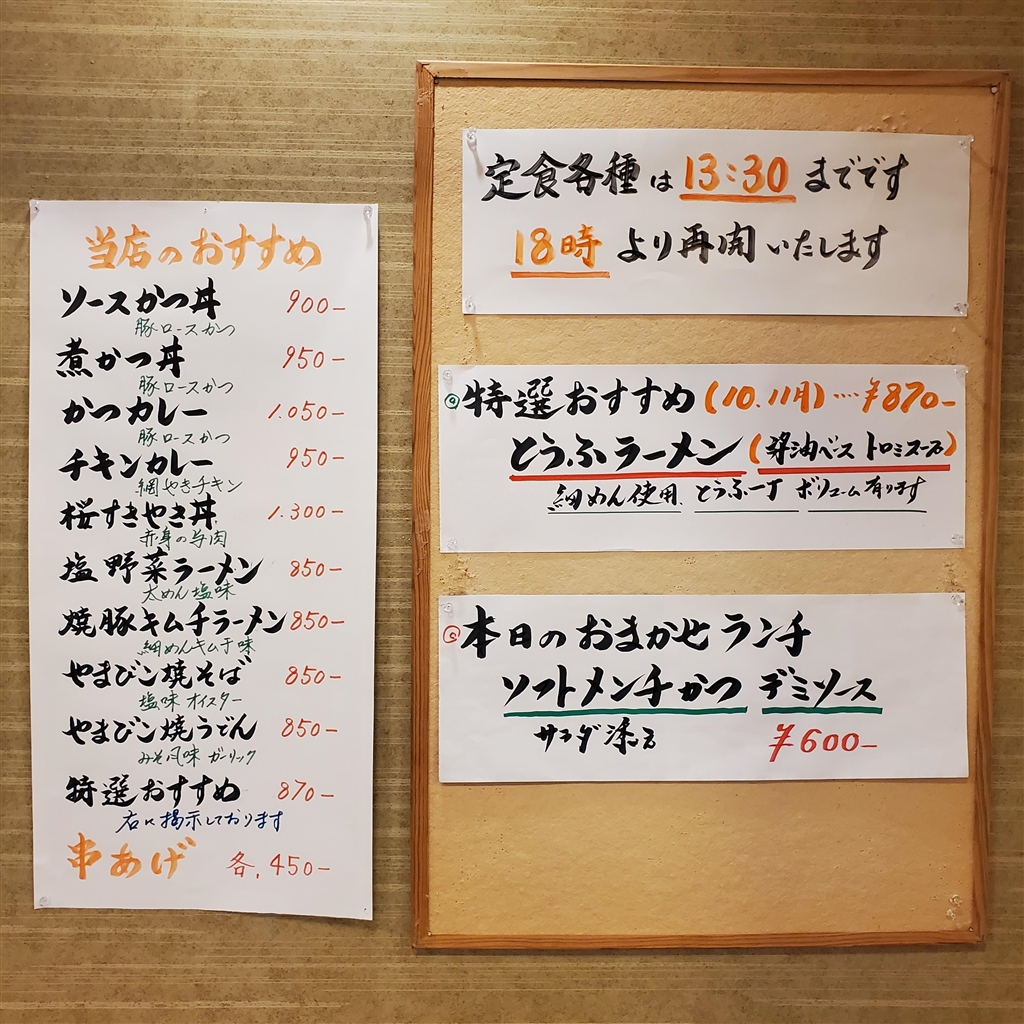 当店のおすすめ
ソースかつ丼 900-
豚ロースかつ
煮かつ丼 950-
豚ロースかつ
かつカレー 1.050-
豚ロースかつ
チキンカレー 950-
網やきチキン
桜すきやき丼 1.300-
赤身の馬肉
塩野菜ラーメン 850-
太めん塩味
焼豚キムチラーメン 850-
細めんキムチ味
やまびこ焼そば 850-
塩味 オイスター
やまびこ焼うどん 850-
みそ風味 ガーリック
特選おすすめ 870-
右に掲示しております
串あげ 各.450-
定食各種は13:30までです
18時より再開いたします
特選おすすめ(10.11月)…¥870-
とうふラーメン(醤油ベース トロミスープ)
細めん使用. とうふ一丁 ボリューム有ります
本日のおまかせランチ
ソフトメンチかつ デミソース
サラダ添え ¥600-